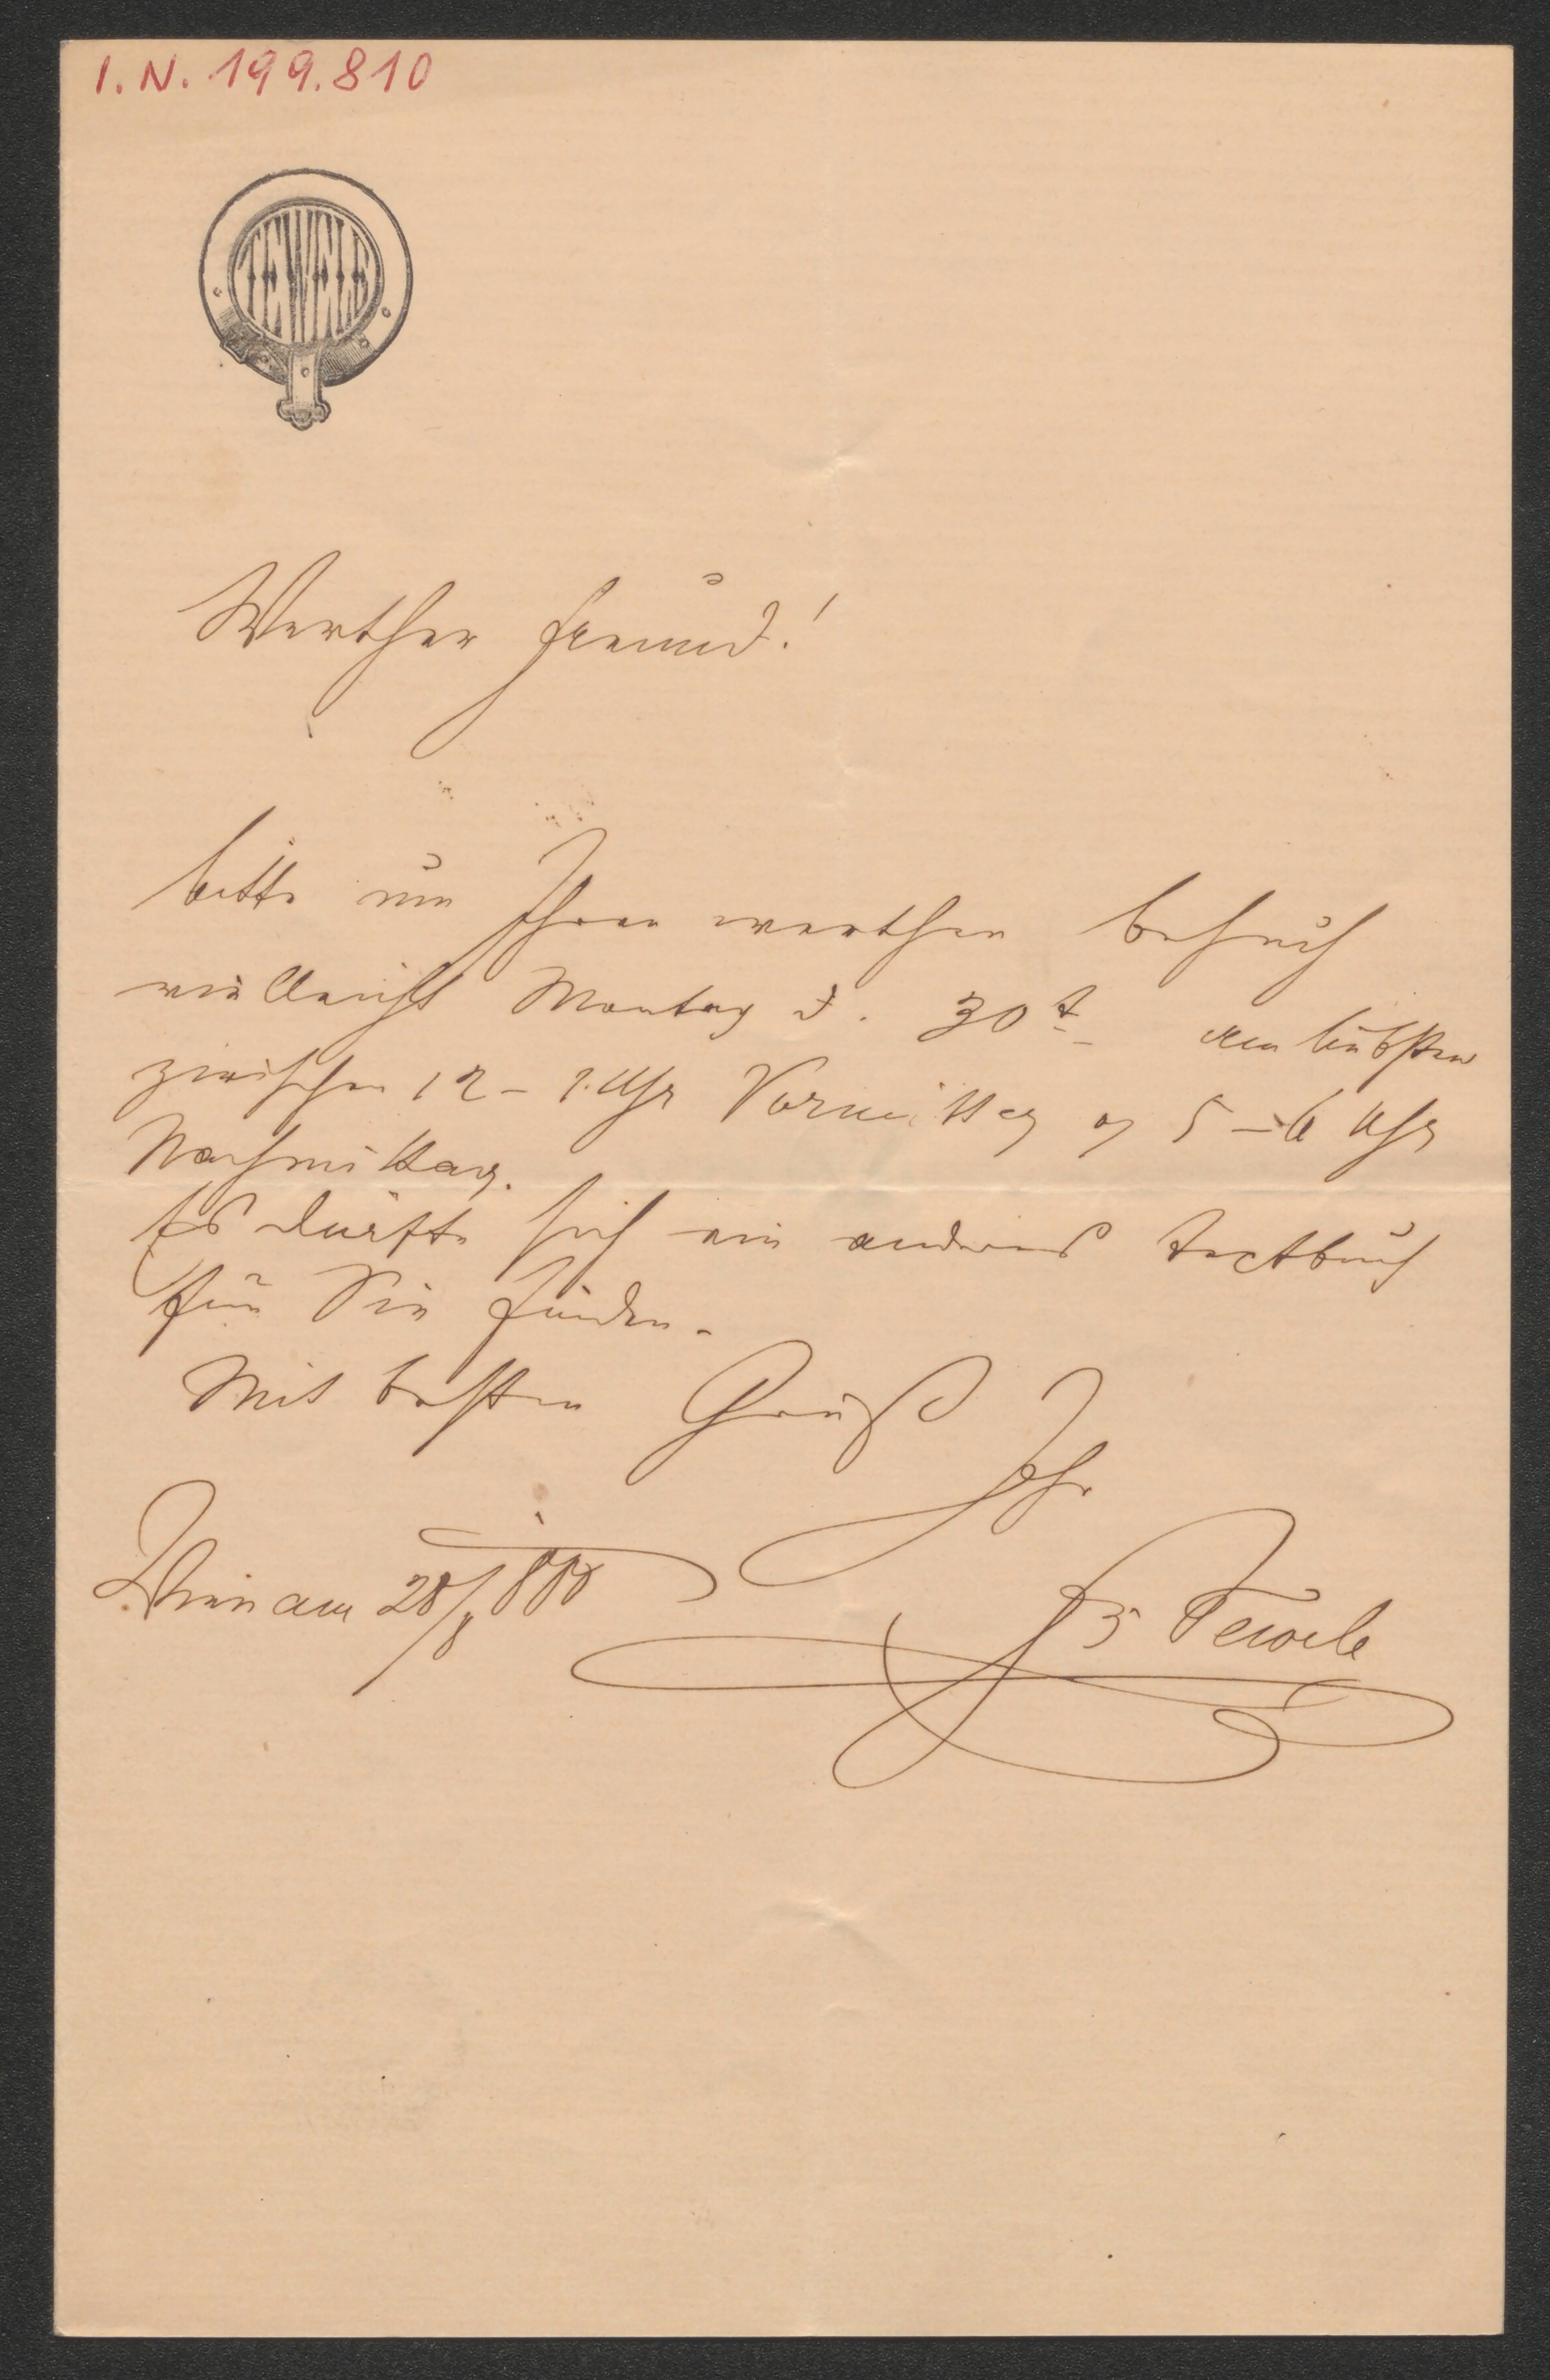 I.N. 199.810
TEWELE
Werther Freund!
bitte um Ihren werthen Besuch
vielleicht Montag d. 30t am liebsten
zwischen 12 – 1 Uhr Vormittag od 5 – 6 Uhr
Nachmittag.
Es dürfte sich ein anderes Textbuch
für Sie finden.
Mit besten Gruß
Ihr
Wien am 28/8 880
Fz Tewele